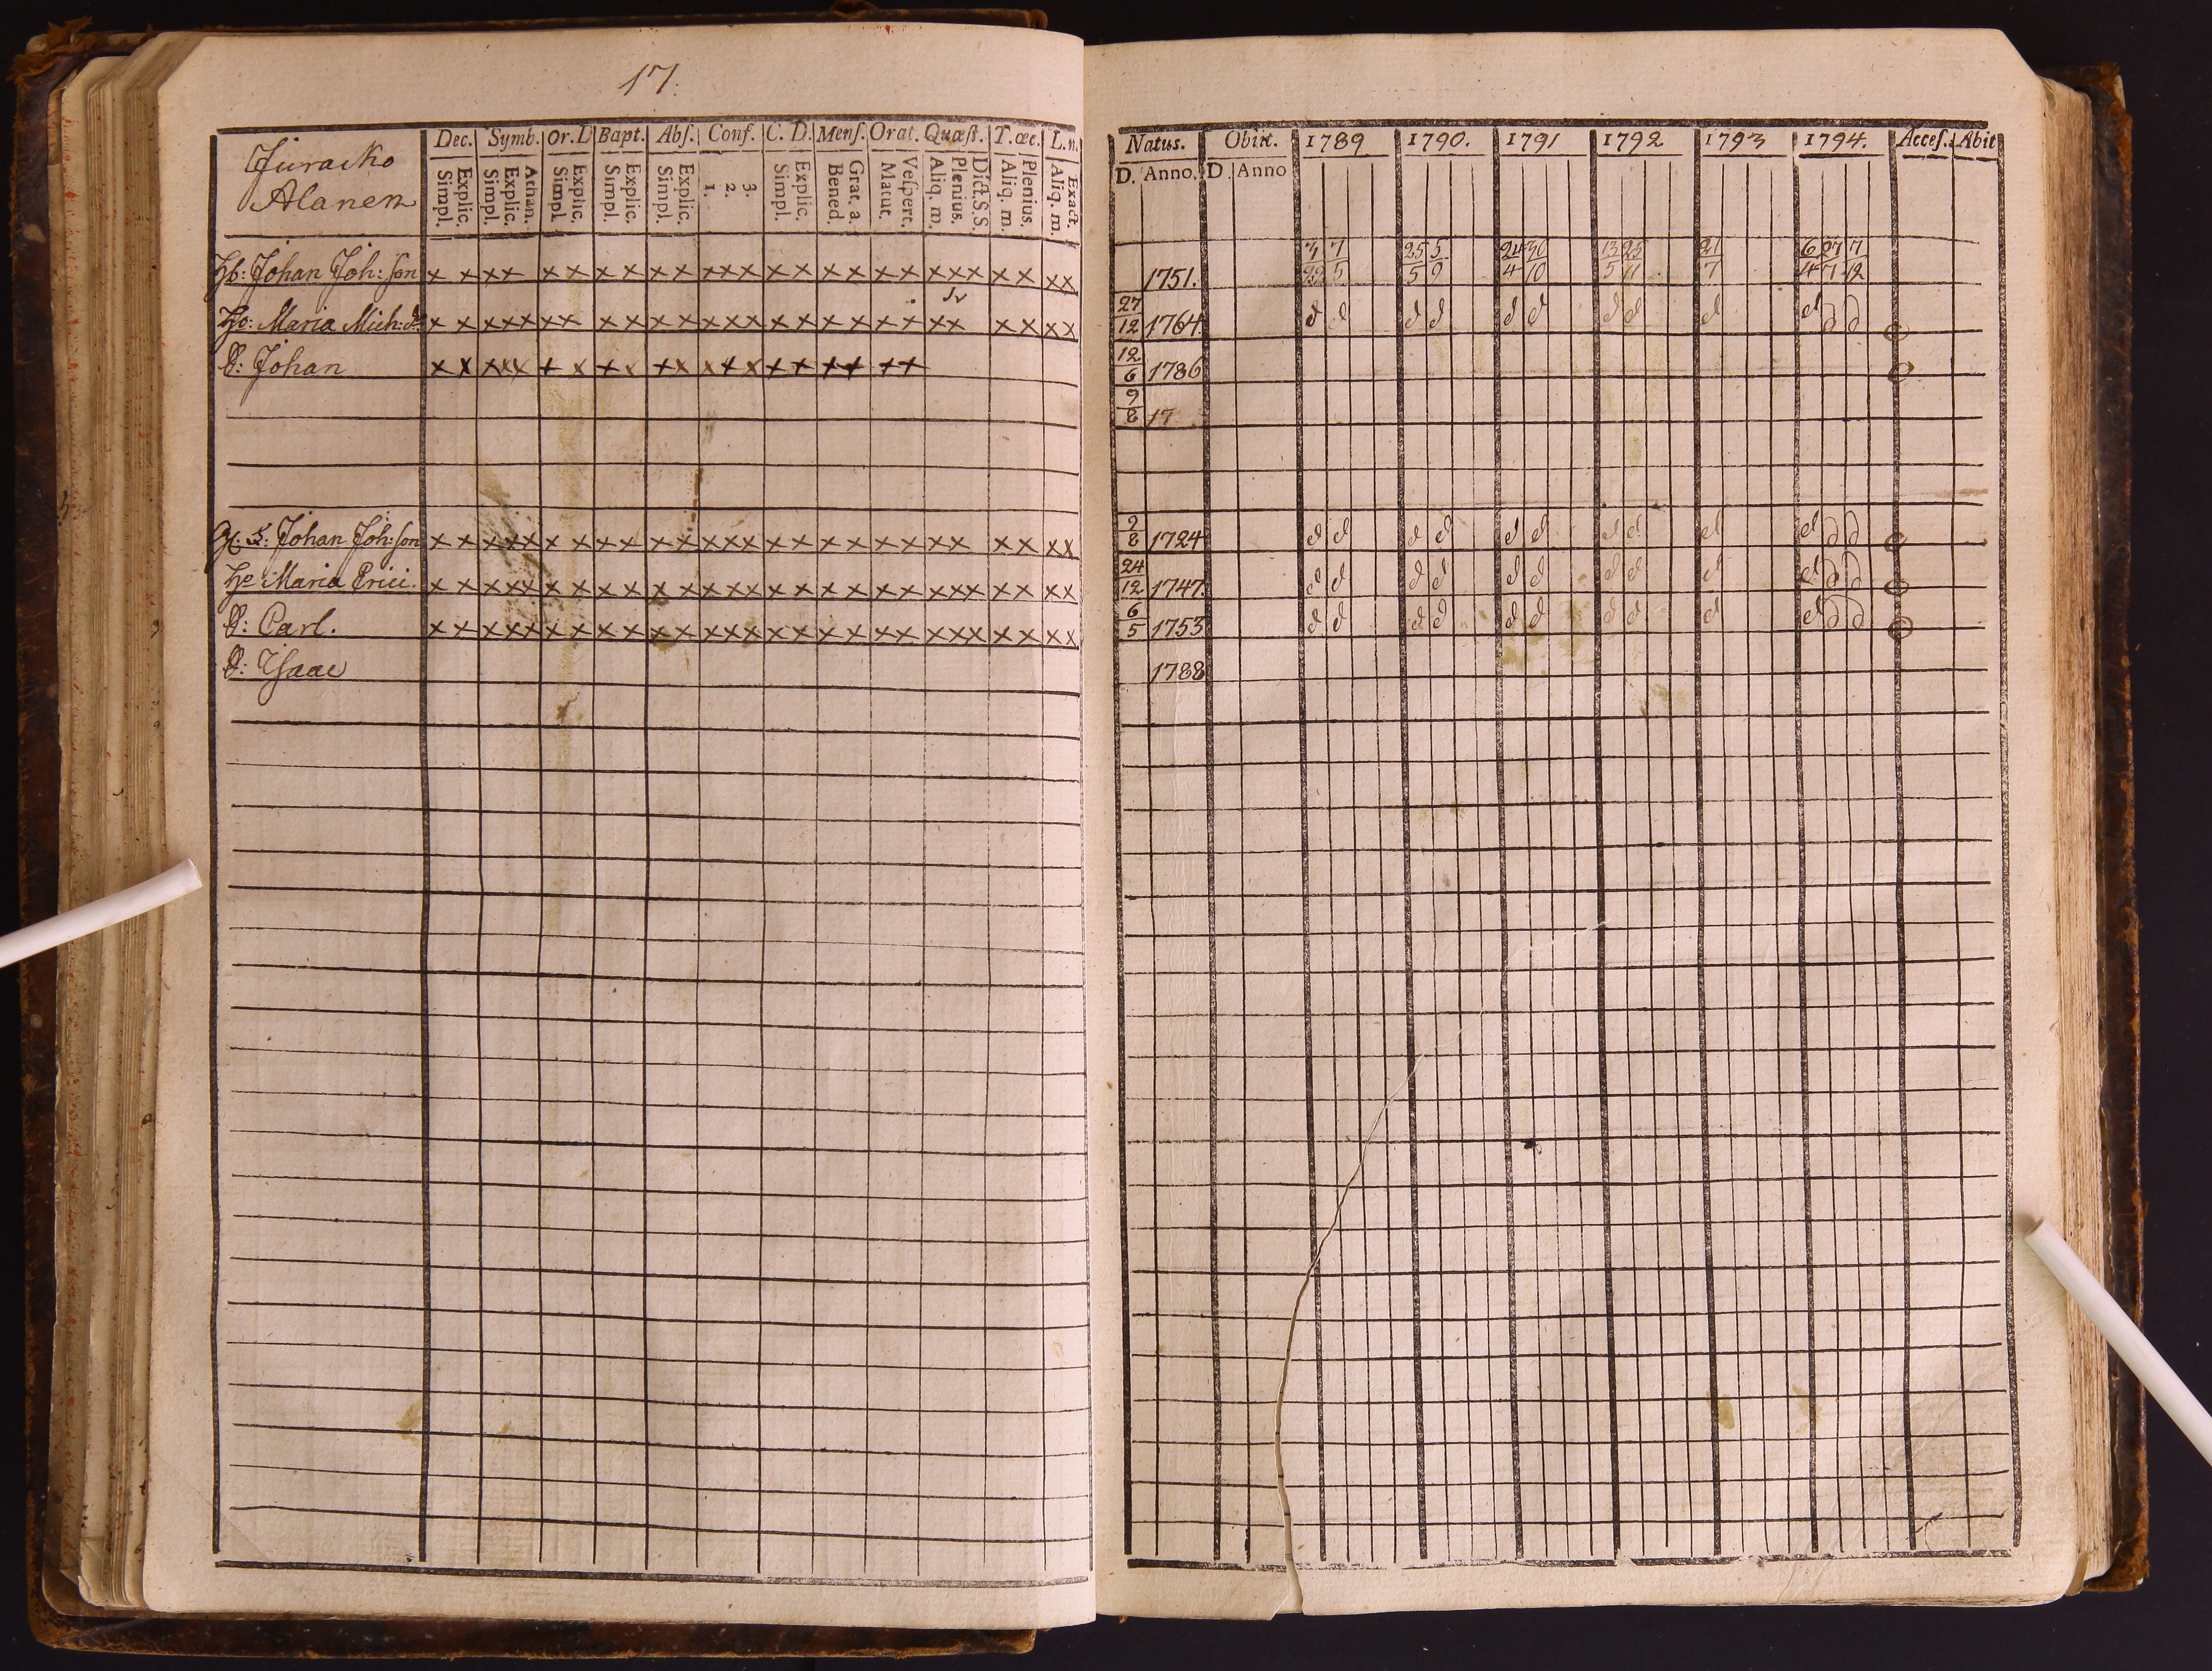 17.
Juracko
Alanen
Dec. Symb. Or. D Bapt. Abſ. Conf. C. D. Menſ. Orat. Quæſt. T. œc. L. n.
Simpl. Explic. Simpl. Explic. Athan. Simpl. Explic. Simpl. Explic. Simpl. Explic. 1. 2. 3. Simpl. Explic. Bened. Grat. a. Matut. Veſpert. Aliq. m. Plenius. Dict. S. S. Aliq. m. Plenius. Aliq. m. Exact.
Hb: Johan Joh: ſon x x x x x x x x x x x x x x x x x x x x x x x x x x
Maria Mich: d. x x x x x x x x x x x x x x x x x x x x x x x x x x
S: Johan x x x x x x x x x x x x x x x x x x x x
Johan Joh: ſon x x x x x x x x x x x x x x x x x x x x x x x x x x
Maria Erici. x x x x x x x x x x x x x x x x x x x x x x x x x x
S: Carl. x x x x x x x x x x x x x x x x x x x x x x x x x x
S: Isaac
Natus. Obiit. 1789 1790. 1791 1792 1793 1794. Acceſ. Abit
D. Anno. D. Anno
1751. 7 5 25 5 5 9 24 30 4 10 13 25 5 11 21 7 6 27 7 4 7 12
27 12 1764 d d d d d d d d d d d d
12 6 1786
9 8 17
2 8 1724 d d d d d d d d d d d d
24 12 1747. d d d d d d d d d d d d
6 5 1753 d d d d d d d d d d d d
1788